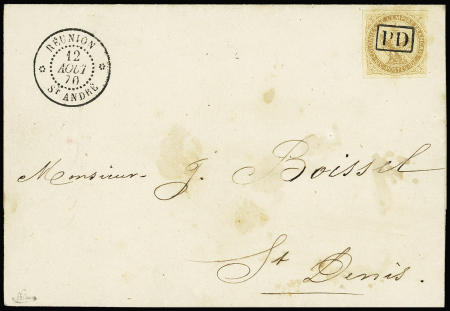 RÉUNION
12
AOUT
70
ST ANDRÉ
PD
Monsieur J. Boissel
St Denis.